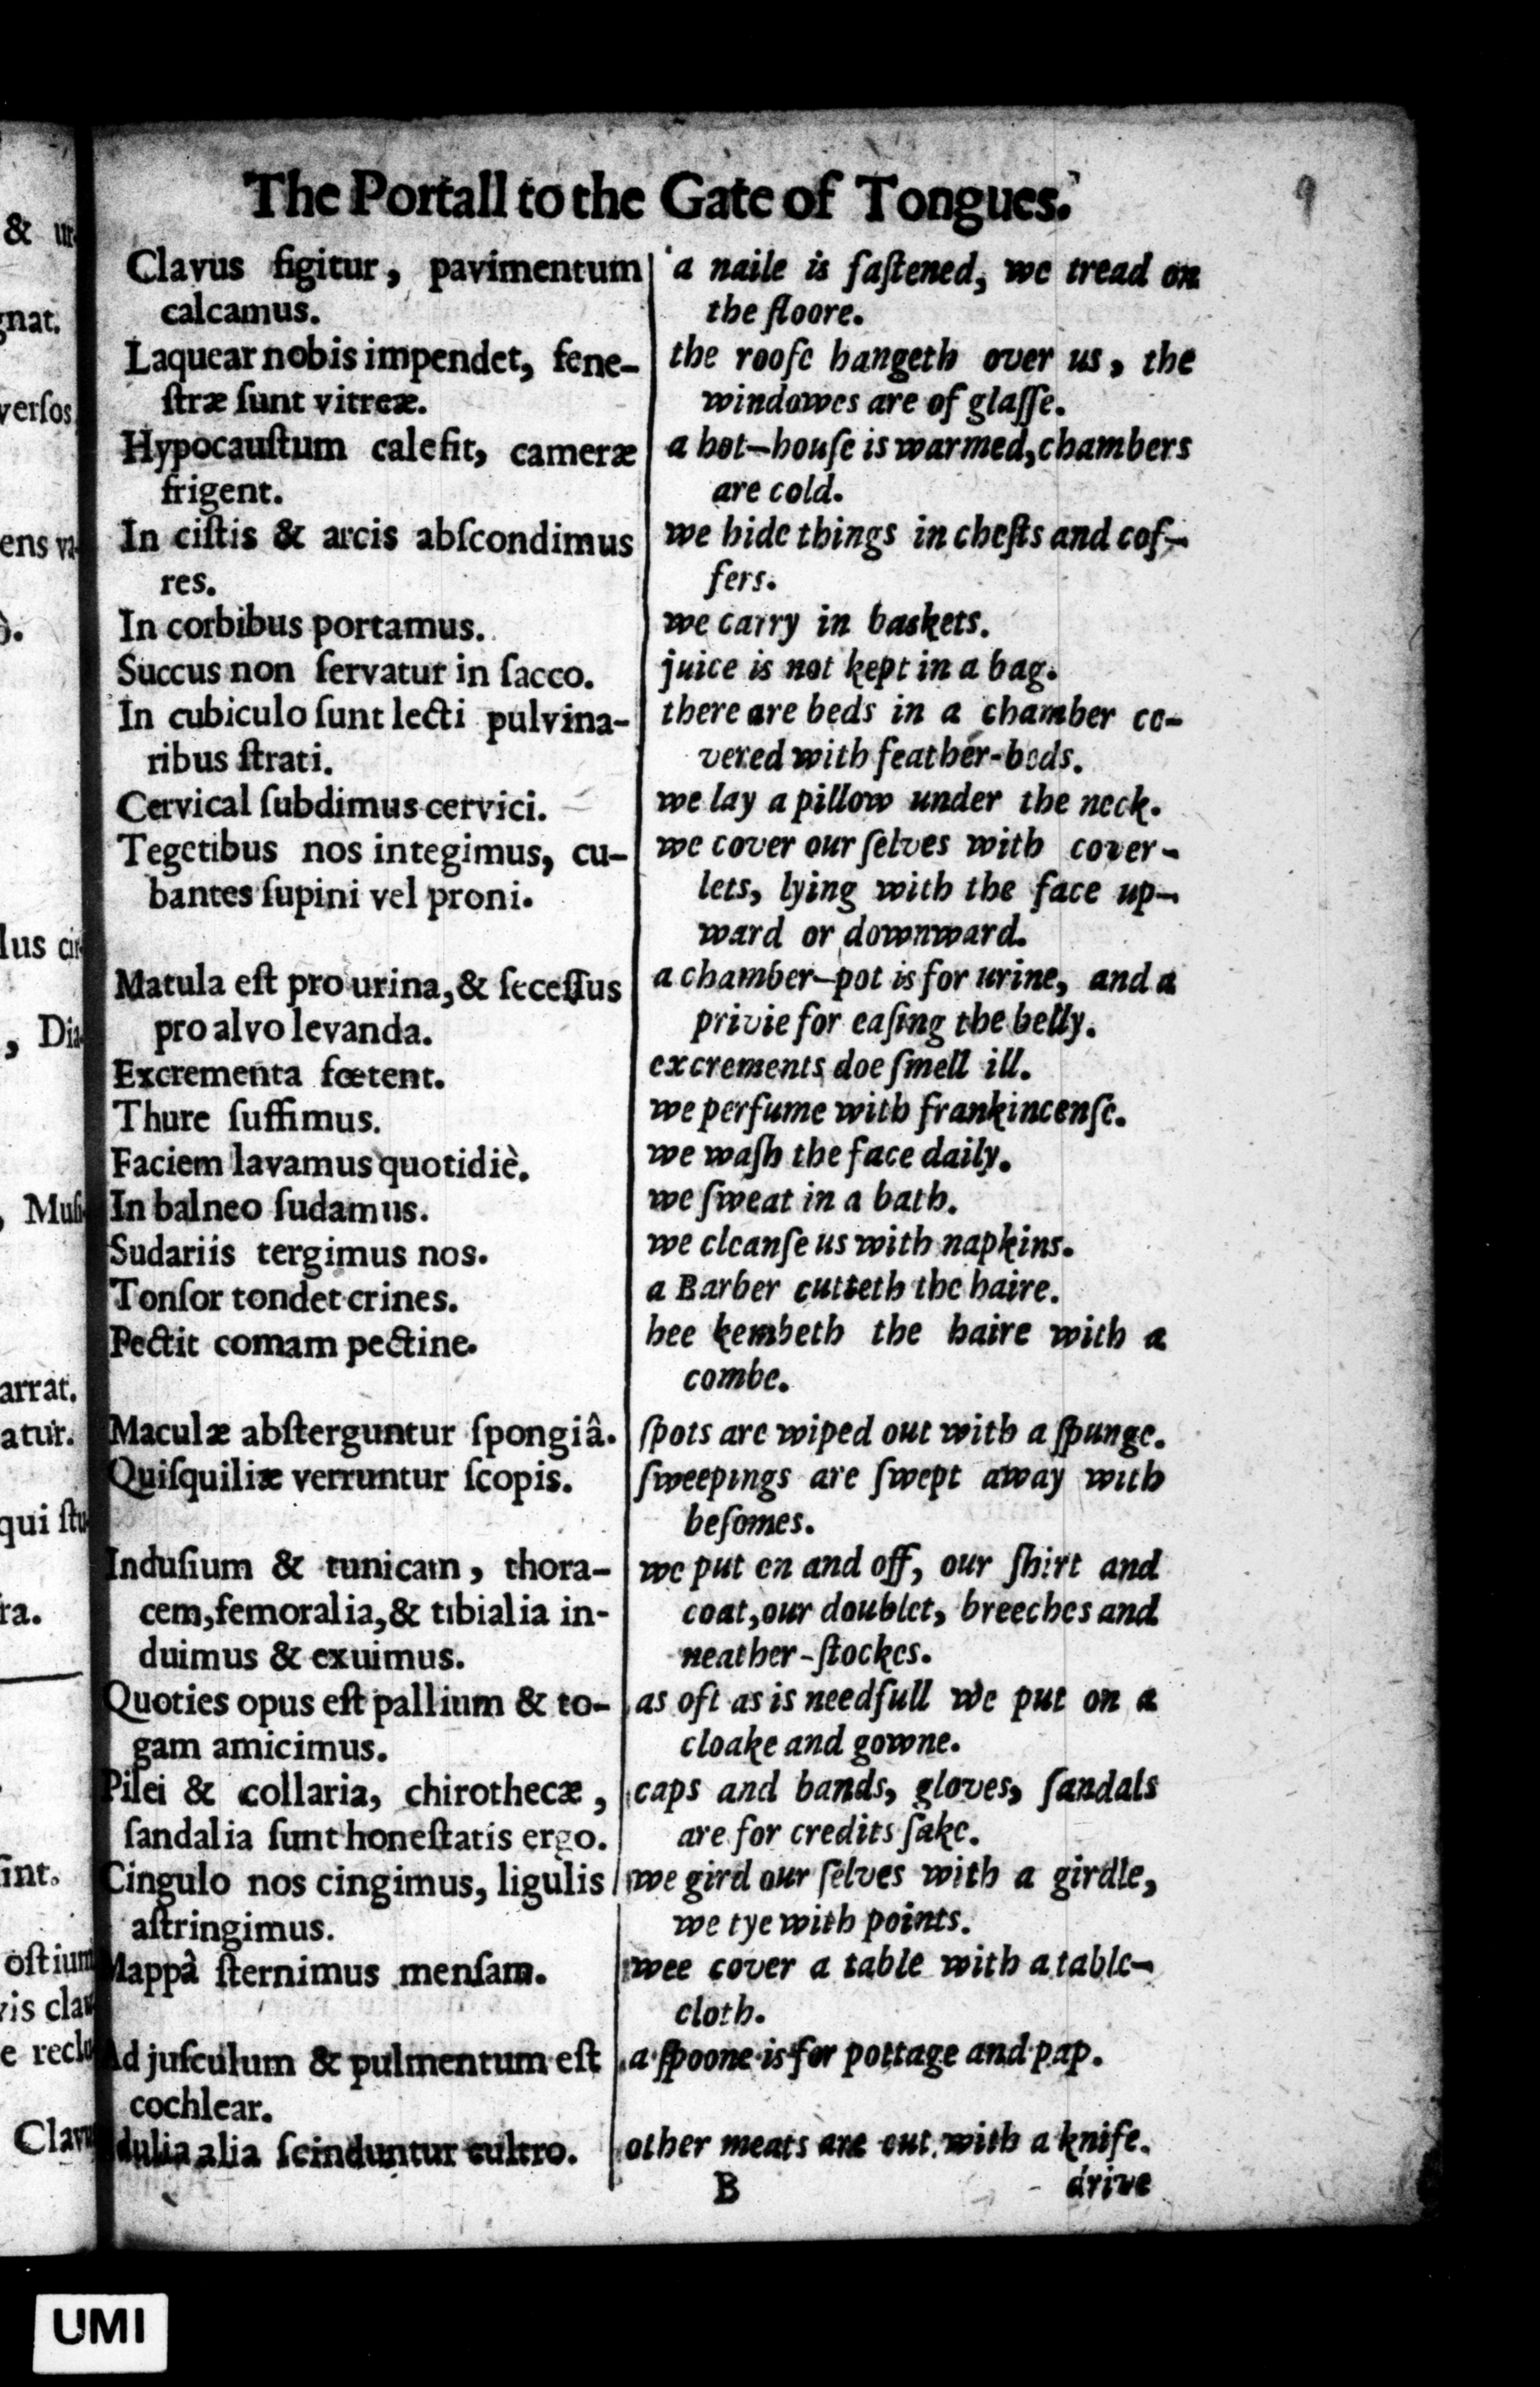 The Portall to the Gate of Tongues.
9
Clavus figitur, pavimentum
calcamus.
Laquear nobis impendet, fene-
ſtræ ſunt vitreæ.
Hypocauſtum calefit, cameræ
frigent.
In ciſtis & arcis abſcondimus
res.
In corbibus portamus.
Succus non ſervatur in ſacco.
In cubiculo ſunt lecti pulvina-
ribus ſtrati.
Cervical ſubdimus cervici.
Tegetibus nos integimus, cu-
bantes ſupini vel proni.
Matula eſt pro urina, & ſeceſſus
pro alvo levanda.
Excrementa fœtent.
Thure ſuffimus.
Faciem lavamus quotidiè.
In balneo ſudamus.
Sudariis tergimus nos.
Tonſor tondet crines.
Pectit comam pectine.
Maculæ abſterguntur ſpongiâ.
Quiſquiliæ verruntur ſcopis.
Induſium & tunicam, thora-
cem, femoralia, & tibialia in-
duimus & exuimus.
Quoties opus eſt pallium & to-
gam amicimus.
Pilei & collaria, chirothecæ,
ſandalia ſunt honeſtatis ergo.
Cingulo nos cingimus, ligulis
aſtringimus.
Mappâ ſternimus menſam.
Ad juſculum & pulmentum eſt
cochlear.
dulia alia ſcinduntur cultro.
a naile is faſtened, we tread on
the floore.
the roofe hangeth over us, the
windowes are of glaſſe.
a hot-houſe is warmed, chambers
are cold.
we hide things in cheſts and cof-
fers.
we carry in baskets.
juice is not kept in a bag.
there are beds in a chamber co-
vered with feather-beds.
we lay a pillow under the neck.
we cover our ſelves with cover-
lets, lying with the face up-
ward or downward.
a chamber-pot is for urine, and a
privie for eaſing the belly.
excrements doe ſmell ill.
we perfume with frankincenſe.
we waſh the face daily.
we ſweat in a bath.
we cleanſe us with napkins.
a Barber cutteth the haire.
hee kembeth the haire with a
combe.
ſpots are wiped out with a ſpunge.
ſweepings are ſwept away with
beſomes.
we put on and off, our ſhirt and
coat, our doublet, breeches and
neather-ſtockes.
as oft as is needfull we put on a
cloake and gowne.
caps and bands, gloves, ſandals
are for credits ſake.
we gird our ſelves with a girdle,
we tye with points.
wee cover a table with a table-
cloth.
a ſpoone is for pottage and pap.
other meats are cut with a knife.
B
drive
& ur-
gnat.
verſos
ens va-
lus cir-
, Dia-
, Muſi-
arrat.
atur.
qui ſtu-
ra.
ſint.
oſtium
vis clau
e reclu
Clavus
UMI